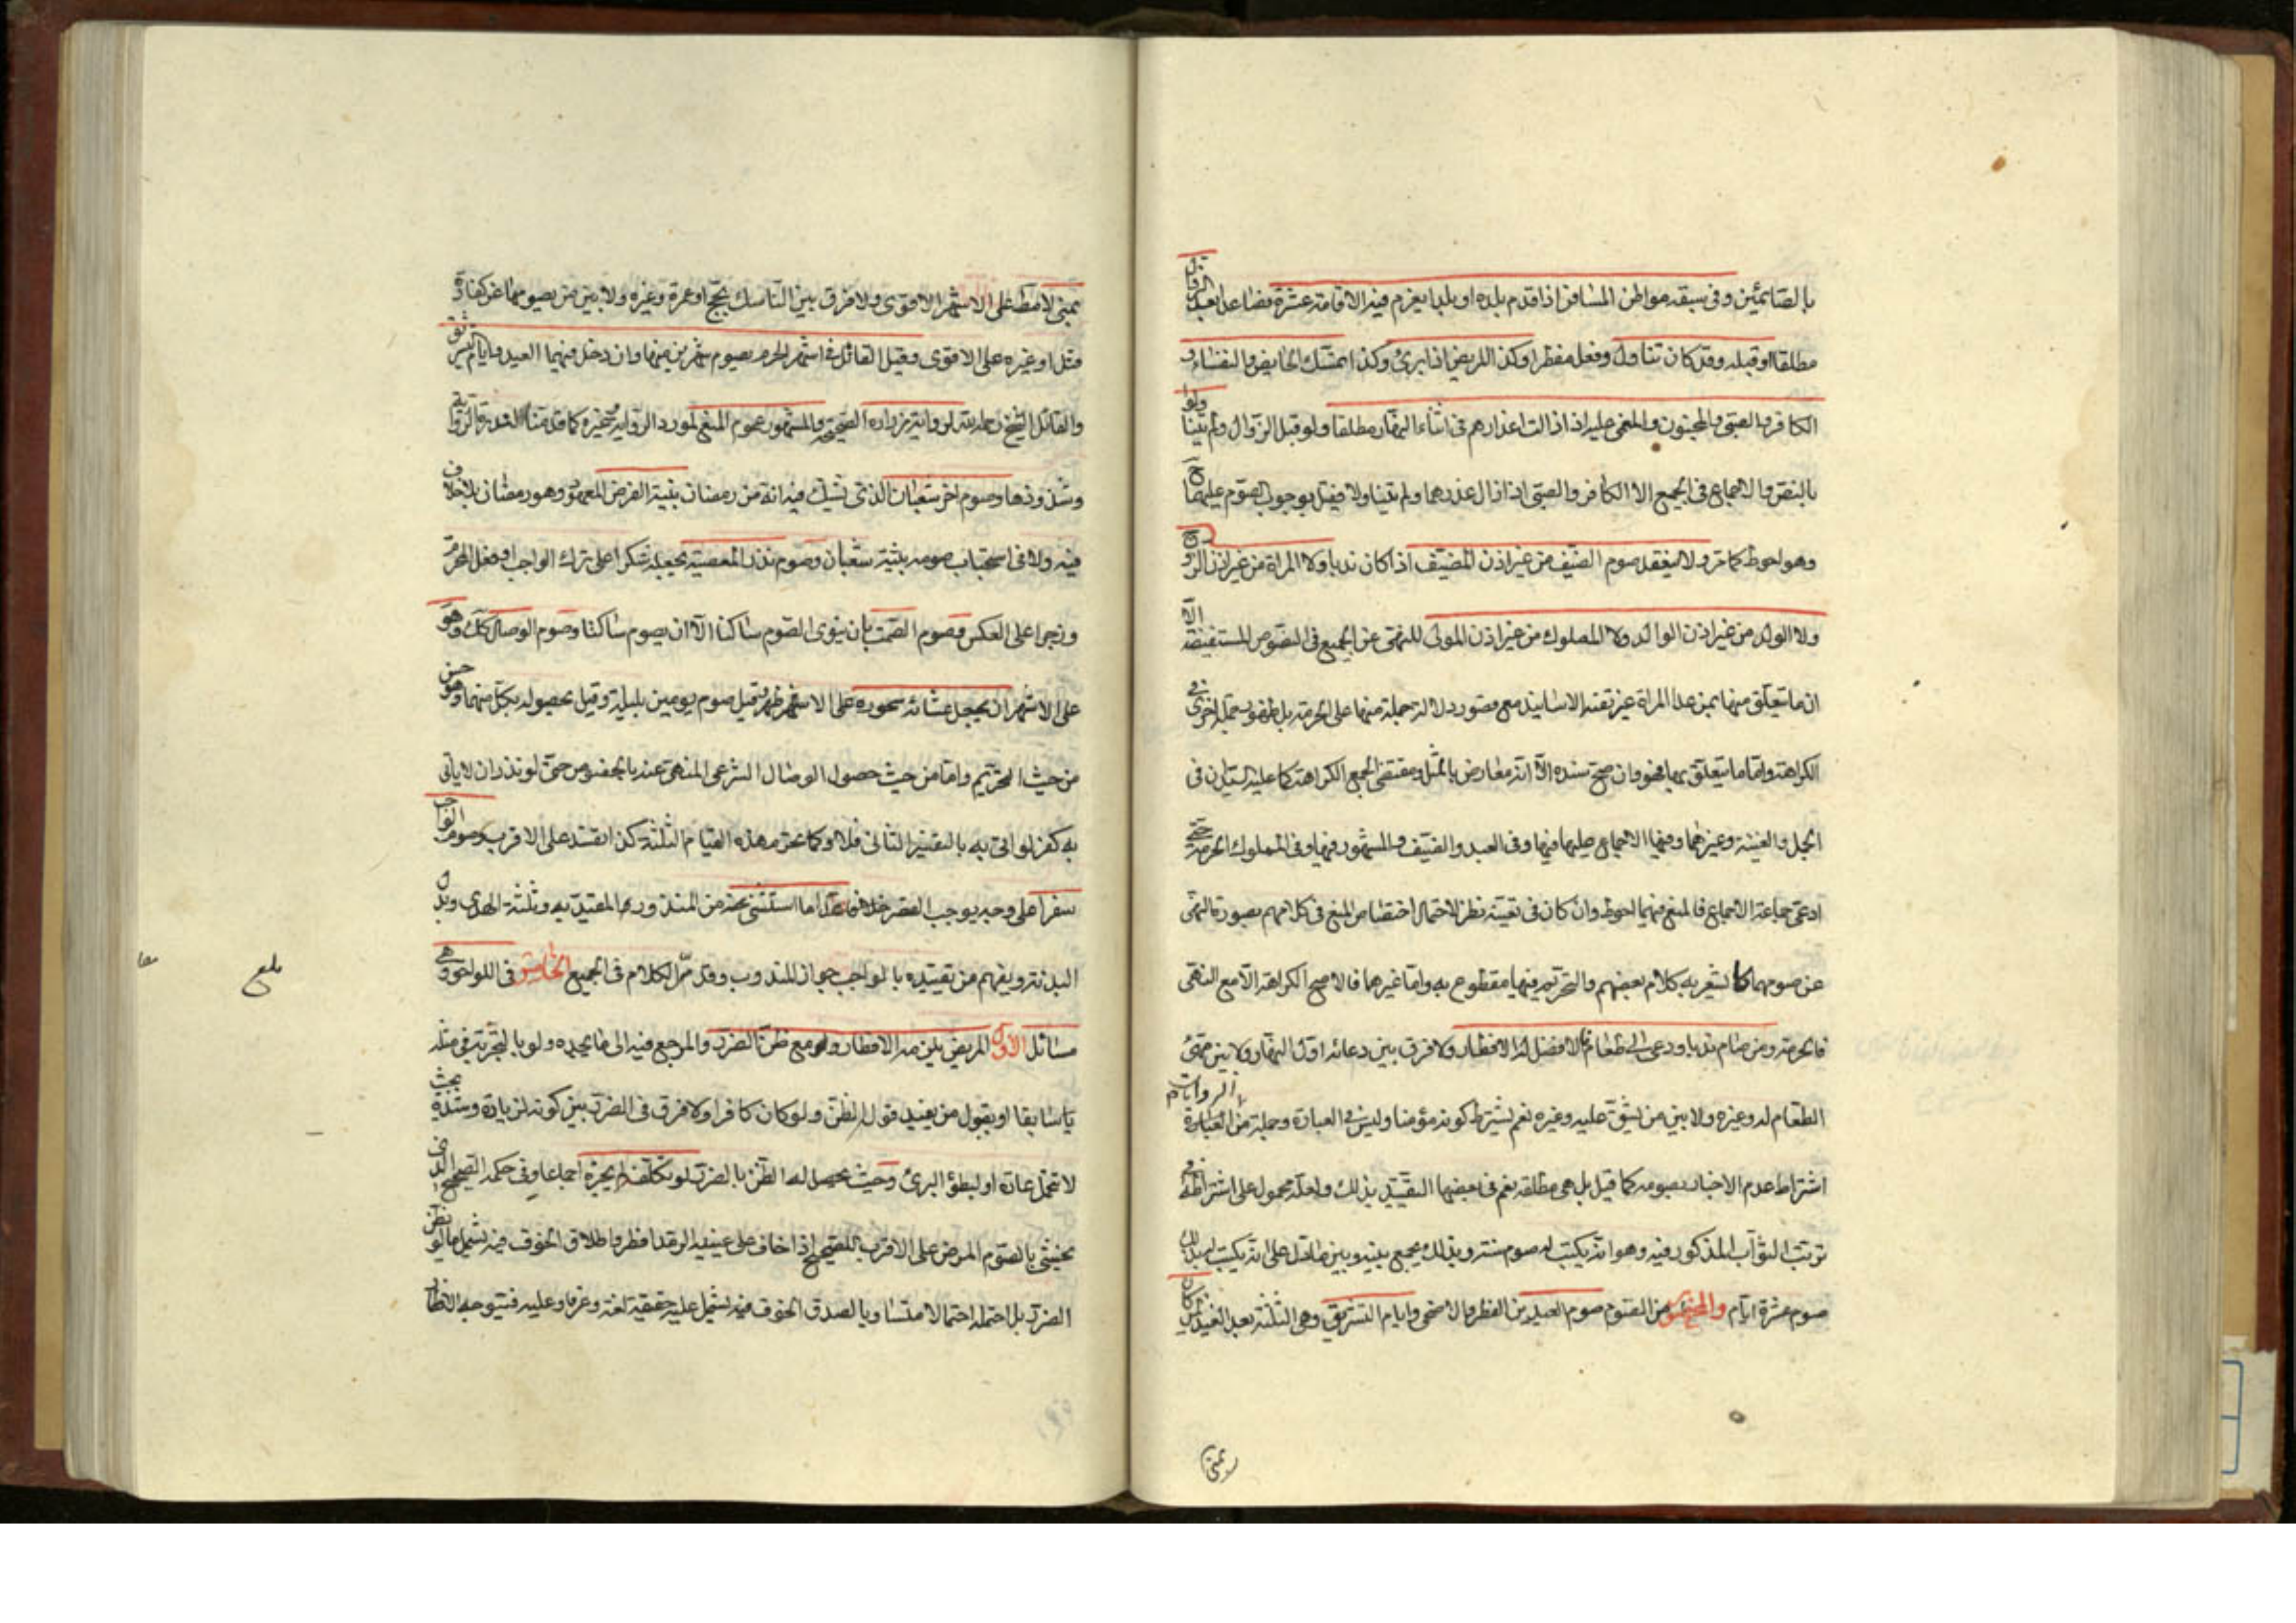 بالصائمين وفي سبعة مواطن المسافر اذا قدم بلده او بلدا يعزم فيه الاقامة عشرة فصاعدا بعد الزوال
مطلقا او قبله وقد كان تناول وفعل مفطرا وكذا المريض اذا برئ وكذا تمسك الحايض والنفساء و
الكافر والصبي والمجنون والمغمى عليه اذا زالت اعذارهم في اثناء النهار مطلقا ولو قبل الزوال ولم يتناولوا
بالنص والاجماع في الجميع الا الكافر والصبي اذا زال عذرهما ولم يتناولا فقيل بوجوب الصوم عليهما ح
وهو احوط كما مر ولا ينعقد صوم الضيف من غير اذن المضيف اذا كان ندبا ولا المراة من غير اذن الزوج
ولا الولد من غير اذن الوالد ولا المملوك من غير اذن المولى للنهي عن الجميع في النصوص المستفيضة الا
ان ما يتعلق منها بمن عدا المراة غير نقية الاسانيد مع قصور دلالة جملة منها على الحرمة بل ظهور جملة اخرى في
الكراهة واما ما يتعلق بها فهو وان صح سنده الا انه معارض بالمثل ومقتضى الجمع الكراهة كما عليه السيدان في
الجمل والغنية وغيرهما وفيها الاجماع عليها فيها وفي العبد والضيف والمشهور فيها وفي المملوك الحرمة حتى
ادعى جماعة الاجماع فالمنع فيهما احوط وان كان في تعينه نظر لاحتمال اختصاص المنع في كلامهم بصورة النهي
عن صومهما كما يشعر به كلام بعضهم والتحريم فيها مقطوع به واما غيرهما فالاصح الكراهة الا مع النهي
فالحرمة ومن صام ندبا ودعي الى طعام فالافضل له الافطار ولا فرق بين دعائه اول النهار ولا بين مهيئ
الطعام له وغيره ولا بين من يشق عليه وغيره نعم يشترط كونه مؤمنا وليس في العبادة وجملة من العبادة الروايات
اشتراط عدم الاخبار بصومه كما قيل بل هي مطلقة نعم في بعضها التقييد بذلك ولعله محمول على اشتراطه في
ترتب الثواب المذكور فيه وهو انه يكتب له صوم سنة وبذلك يجمع بينه وبين ما دل على انه يكتب له بذلك
صوم عشرة ايام والمحظور من الصوم صوم العيدين الفطر والاضحى وايام التشريق وهي الثلثة بعد العيد لمن كان
بمنى
بمنى لا مطلقا على الاشهر الاقوى ولا فرق بين الناسك بحج او عمرة وغيره ولا بين من يصومها عن كفارة
قتل او غيره على الاقوى وقيل القاتل في اشهر الحرم يصوم شهرين منها وان دخل فيهما العيد وايام تشريق
والقائل الشيخ وجماعة لرواية زرارة الصحيحة والمشهور عموم المنع لمورد الرواية وغيره كما قدمنا لندرة الرواية
وشذوذها وصوم اخر شعبان الذي يشك فيه انه من رمضان بنية الفرض المعهود وهو رمضان بلا خلاف
فيه ولا في استحباب صومه بنية شعبان وصوم نذر المعصية بجعله شكرا على ترك الواجب او فعل المحرم
وزجرا على العكس وصوم الصمت بان ينوي الصوم ساكتا الا ان يصوم ساكتا وصوم الوصال كك وهو
على الاشهر ان يجعل عشائه سحوره على الاشهر الاظهر وقيل صوم يومين بليلة وقيل بحصوله بكل منهما وهو حسن
من حيث التحريم واما من حيث حصول الوصال الشرعي المنهي عنه بالخصوص حتى لو نذر ان لا ياتي
به كفر لو اتى به بالتفسير الثاني فلا وكما يحرم هذه الصيام الثلثة كذا تفسد على الاقرب وصوم الواجب
سفرا على وجه يوجب القصر خلافا عدا ما استثنى عنه من المنذور المقيد به وثلثة الهدي وبدل
البدنة ويفهم من تقييده بالواجب جواز المندوب وقد مر الكلام في الجميع الخامس في اللواحق وهي
مسائل الاولى المريض يلزمه الافطار ولو مع ظن الضرر والمرجع فيه الى ما يجده ولو بالتجربة في مثله
سابقا او بقول من يفيد قوله الظن ولو كان كافرا ولا فرق في الضرر بين كونه لزيادة وشدة بحيث
لا تتحمل عادة او لبطؤ البرئ وحيث يحصل له الظن بالضرر لو تكلفه لم يجزه اجماعا وفي حكمه الصحيح الذي
يخشى بالصوم المرض على الاقرب للصحيح اذا خاف على عينيه الرمد افطر واطلاق الخوف فيه يشمل ما لو ظن
الضرر بل احتمله احتمالا متساويا لصدق الخوف فيه يشمل عليه حقيقة لغة وعرفا وعليه فيتوجه الافطار
بلغ